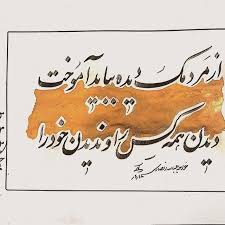 از مردمک دیده بباید آموخت
دیدن همه کس را و ندیدن خود را
خواجه عبدالله انصاری